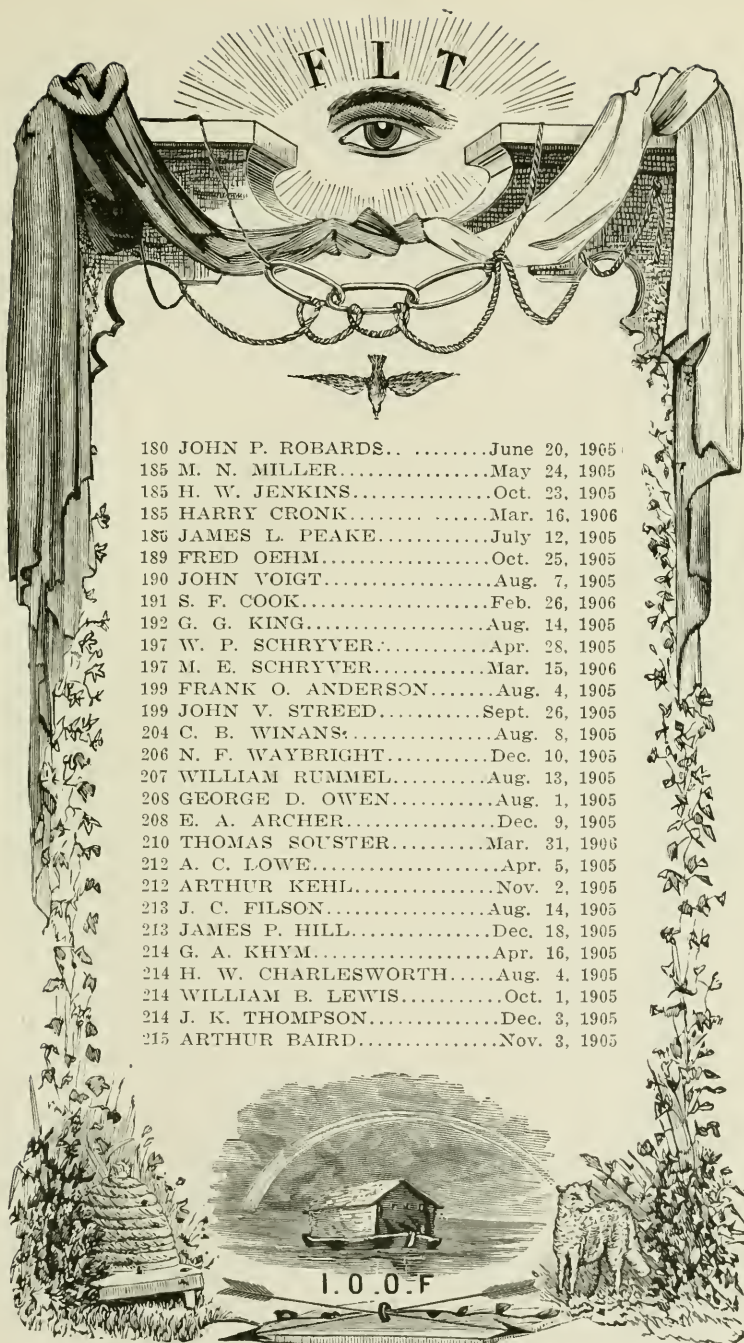 F L T
180 JOHN P. ROBARDS.. .........June 20, 1905
185 M. N. MILLER...............May 24, 1905
185 H. W. JENKINS..............Oct. 23, 1905
185 HARRY CRONK........ ......Mar. 16, 1906
186 JAMES L. PEAKE............July 12, 1905
189 FRED OEHM.................Oct. 25, 1905
190 JOHN VOIGT.................Aug. 7, 1905
191 S. F. COOK.................Feb. 26, 1906
192 G. G. KING.................Aug. 14, 1905
197 W. P. SCHRYVER............Apr. 28, 1905
197 M. E. SCHRYVER............Mar. 15, 1906
199 FRANK O. ANDERSON.......Aug. 4, 1905
199 JOHN V. STREED..........Sept. 26, 1905
204 C. B. WINANS...............Aug. 8, 1905
206 N. F. WAYBRIGHT..........Dec. 10, 1905
207 WILLIAM RUMMEL..........Aug. 13, 1905
208 GEORGE D. OWEN...........Aug. 1, 1905
208 E. A. ARCHER...............Dec. 9, 1905
210 THOMAS SOUSTER..........Mar. 31, 1906
212 A. C. LOWE..................Apr. 5, 1905
212 ARTHUR KEHL..............Nov. 2, 1905
213 J. C. FILSON...............Aug. 14, 1905
213 JAMES P. HILL.............Dec. 18, 1905
214 G. A. KHYM................Apr. 16, 1905
214 H. W. CHARLESWORTH.....Aug. 4, 1905
214 WILLIAM B. LEWIS..........Oct. 1, 1905
214 J. K. THOMPSON............Dec. 3, 1905
215 ARTHUR BAIRD.............Nov. 3, 1905
I.O.O.F